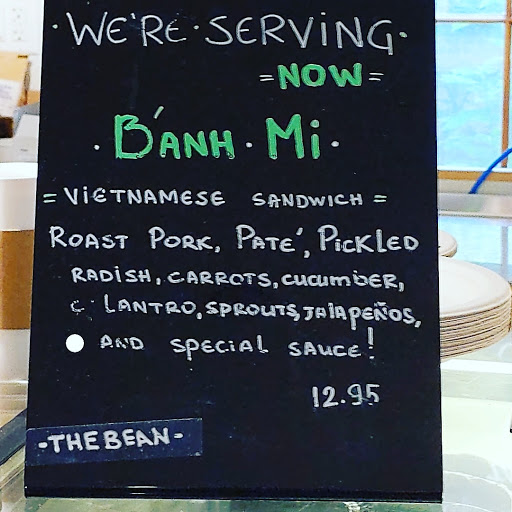 ·WE'RE·SERVING·
=NOW=
·B'ANH·Mi·
=VIETNAMESE SANDWICH=
ROAST PORK, PATE', PICKLED
RADISH, CARROTS, cucumber,
CiLANTRO, SPROUTS, JAlAPEÑOS,
AND SPECIAL SAUCE!
12.95
-THE BEAN-